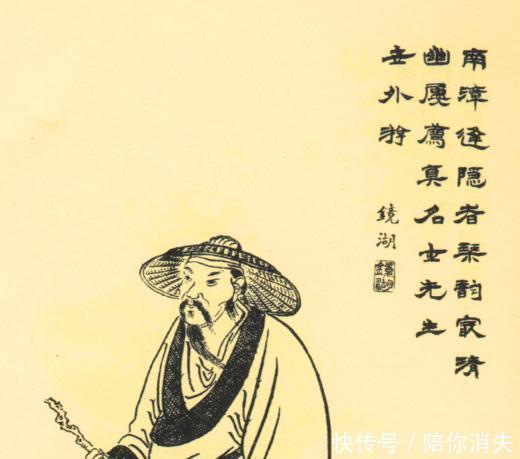 南漳逢隐者琴韵冣清
幽屢薦真名士先生
世外游
鏡湖
快传号 / 陪你消失